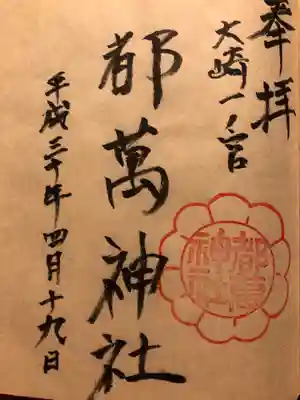 奉拝
大崎一ノ宮
都萬神社
平成三十年四月十九日
都萬神社